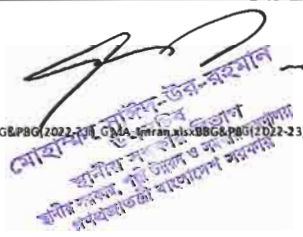 G&PBG(2022-23)_GSMA_Imran.xlsxBBG&PBG(2022-23)
মোহাম্মদ সাঈদ-উর-রহমান
উপসচিব
স্থানীয় সরকার বিভাগ
স্থানীয় সরকার, পল্লী উন্নয়ন ও সমবায় মন্ত্রণালয়
গণপ্রজাতন্ত্রী বাংলাদেশ সরকার